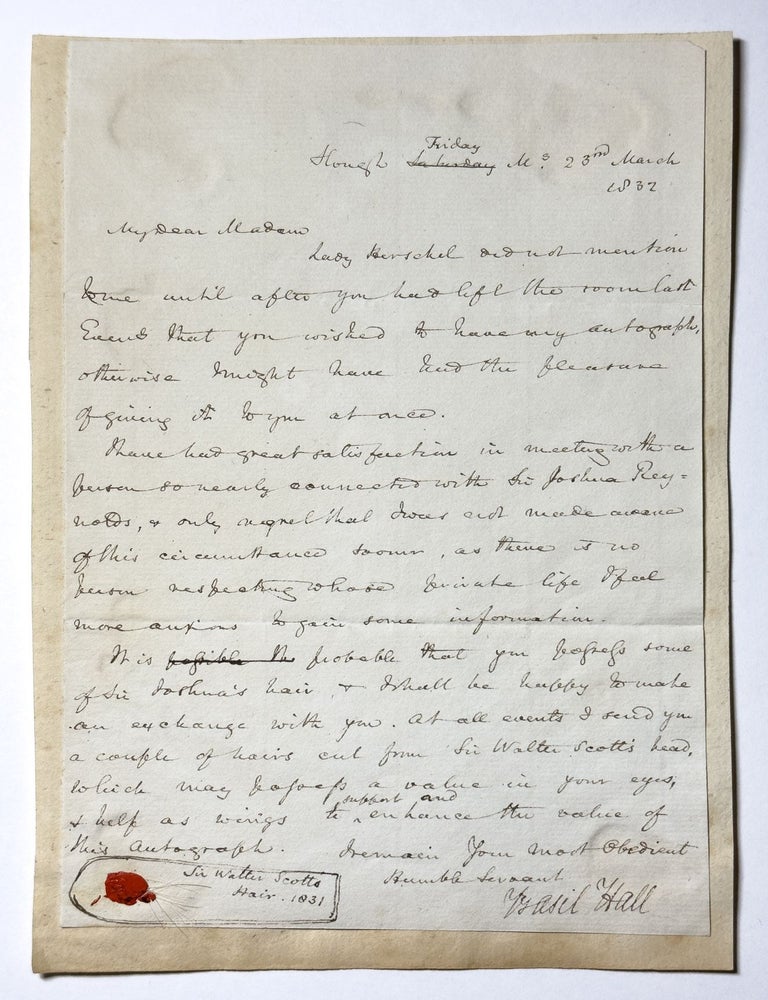 Friday
Slough Saturday Mg. 23rd March
1832
My Dear Madam
Lady Herschel did not mention
to me until after you had left the room last
Eveng that you wished to have my autograph,
otherwise I might have had the pleasure
of giving it to you at once.
I have had great satisfaction in meeting with a
person so nearly connected with Sir Joshua Rey=
nolds, & only regret that I was not made aware
of this circumstance sooner, as there is no
person respecting whose private life I feel
more anxious to gain some information.
It is possible th probable that you possess some
of Sir Joshua's hair, & I shall be happy to make
an exchange with you. At all events I send you
a couple of hairs cut from Sir Walter Scott's head,
which may possess a value in your eyes,
support and
& help as wings to enhance the value of
this Autograph. I remain Your most Obedient
Humble Servant
Basil Hall
Sir Walter Scotts
Hair. 1831